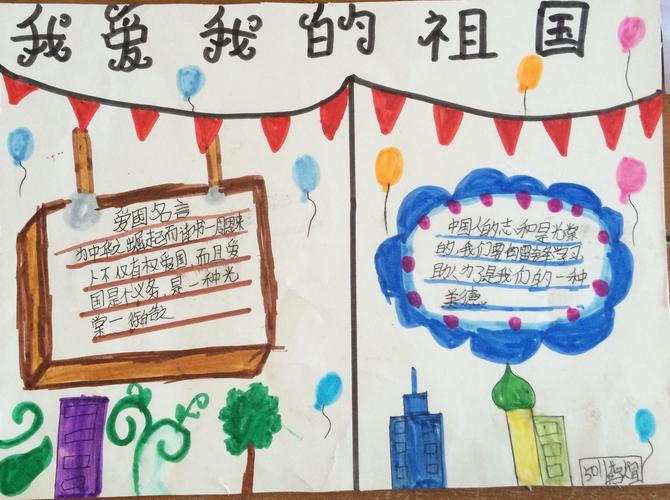 我爱我的祖国
爱国名言
为中华之崛起而读书一周恩来
人不仅有权爱国,而且爱
国是个义务,是一种光
荣一
中国人的志和是光荣
的,我们要向雷锋学习
助人为了是我们的一种
美德.
501